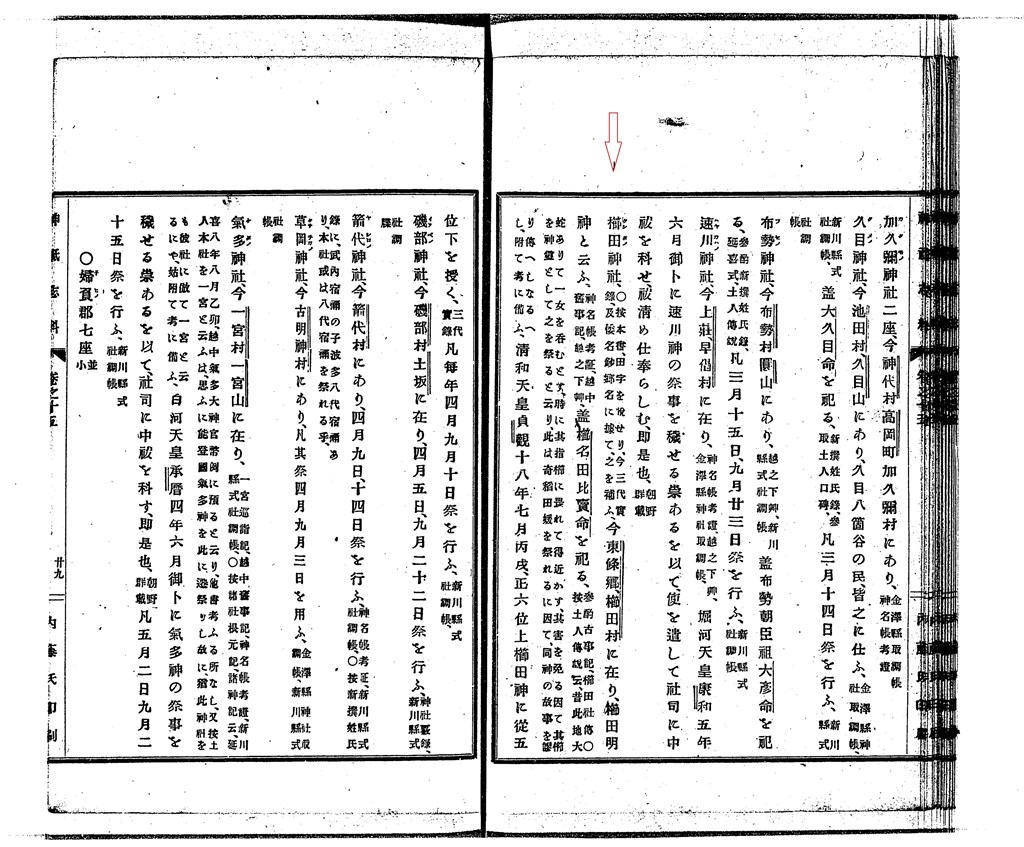 加久彌神社二座、今神代村高岡町加久彌村にあり、金澤縣取調帳神名帳考證
久目神社、今池田村久目山にあり、久目八箇谷の民、皆之に仕ふ、金澤縣神社取調帳、
新川縣式社調帳、盖大久目命を祀る、新撰姓氏錄、參取土人口碑、凡三月十四日祭を行ふ、新川縣式社調帳
布勢神社、今布勢村圓山にあり、越之下艸、新川縣式社調帳盖布勢朝臣祖大彦命を祀
る、參酌新撰姓氏錄、延喜式、土人傳說、凡三月十五日、九月廿三日祭を行ふ、新川縣式社調帳
速川神社、今上莊、早借村に在り、神名帳考證、越之下艸、金澤縣神社取調帳、堀河天皇康和五年
六月御卜に速川神の祭事を穢せる祟あるを以て使を遣して社司に中
祓を科せ、祓淸め仕奉らしむ、即是也、朝野群載
櫛田神社、○按本書、田字を脫せり、今三代實錄、及倭名鈔鄕名に據て之を補ふ、今東條鄕、櫛田村に在り、櫛田明
神と云ふ、神名帳考証、越中舊事記、越之下艸、盖櫛名田比賣命を祀る、參酌古事記、櫛田社傳○按土人傳說云、昔此地大
蛇ありて一女を吞むとす、時に其指櫛に畏れて得近かす、其害を免る因て其櫛を神靈として之を祭ると云り、此は奇稻田媛を祭れるに因て、同神の故事を謬
り傳へしなるへし、附て考に備ふ、淸和天皇貞觀十八年七月丙戌、正六位上櫛田神に從五
位下を授く、三代實錄凡每年四月九月十日祭を行ふ、新川縣式社調帳、
磯部神社、今磯部村土坂に在り、四月五日、九月二十二日祭を行ふ、神社覈錄、新川縣式社調
牒
箭代神社、今箭代村にあり、四月九日、十四日祭を行ふ、神名帳考証、新川縣式社調帳、○按新撰姓氏
錄に、武內宿禰の子波多八代宿禰あり、本社或は八代宿禰を祭れる乎、
草岡神社、今古明神村にあり、凡其祭四月九月三日を用ふ、金澤縣神社取調帳、新川縣式
社調帳
氣多神社、今一宮村一宮山に在り、一宮巡詣記、越中舊事記、神名帳考證、新川縣式社調帳、○按諸社根元記、諸神記云、延
喜八年八月乙卯、越中氣多大神官幣例に預ると云り、他書考ふる所なし、又按土人本社を一宮と云ふは、思ふに能登國氣多神を此に遷祭りし故に、猶此神社を
も彼社に倣て一宮と云るにや、姑附て考に備ふ、白河天皇承曆四年六月御卜に氣多神の祭事を
穢せる祟あるを以て、社司に中祓を科す、即是也、朝野群載凡五月二日九月二
十五日祭を行ふ、新川縣式社調帳
○婦負郡七座並小
神祇志料
卷之十五
廿九
內藤氏印刷